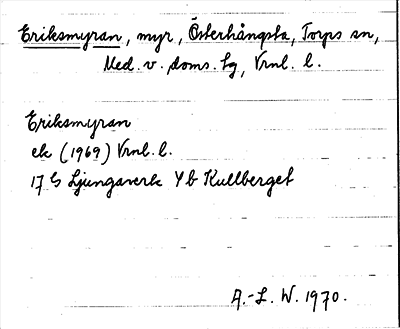 Eriksmyran, myr, Österhångsta, Torps sn,
Med. v. doms. hg, Vrnl. l.
Eriksmyran
ek (1969) Vrnl. l.
17 G Ljungaverk Y b Kullberget
A.-L. W. 1970.